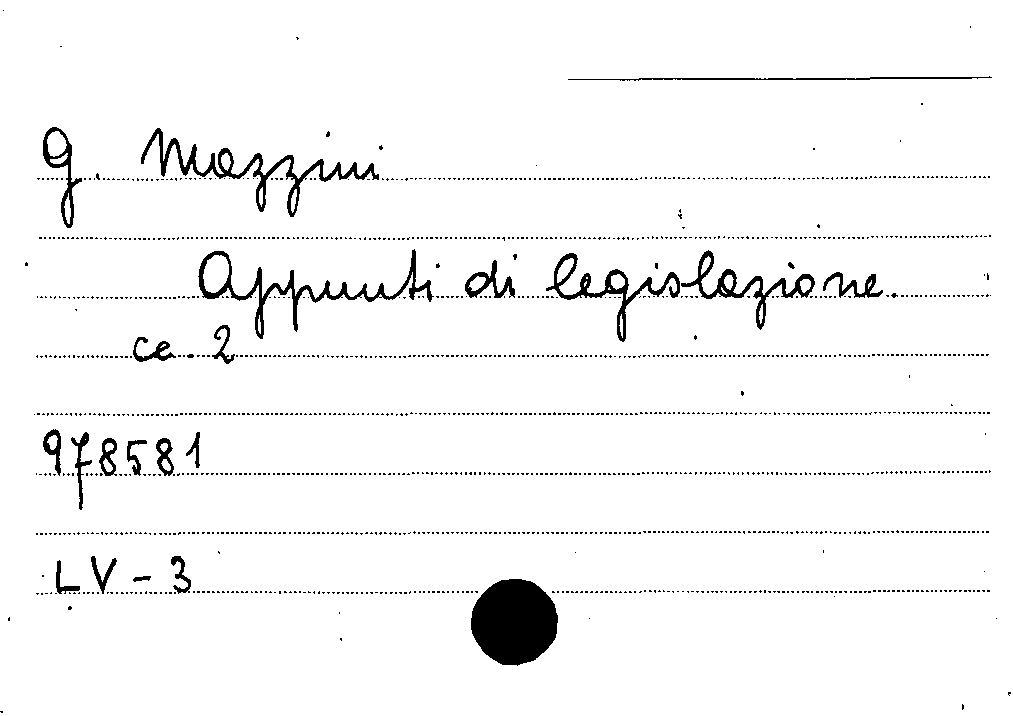 G. Mazzini
Appunti di legislazione.
ca. 2
978581
LV-3